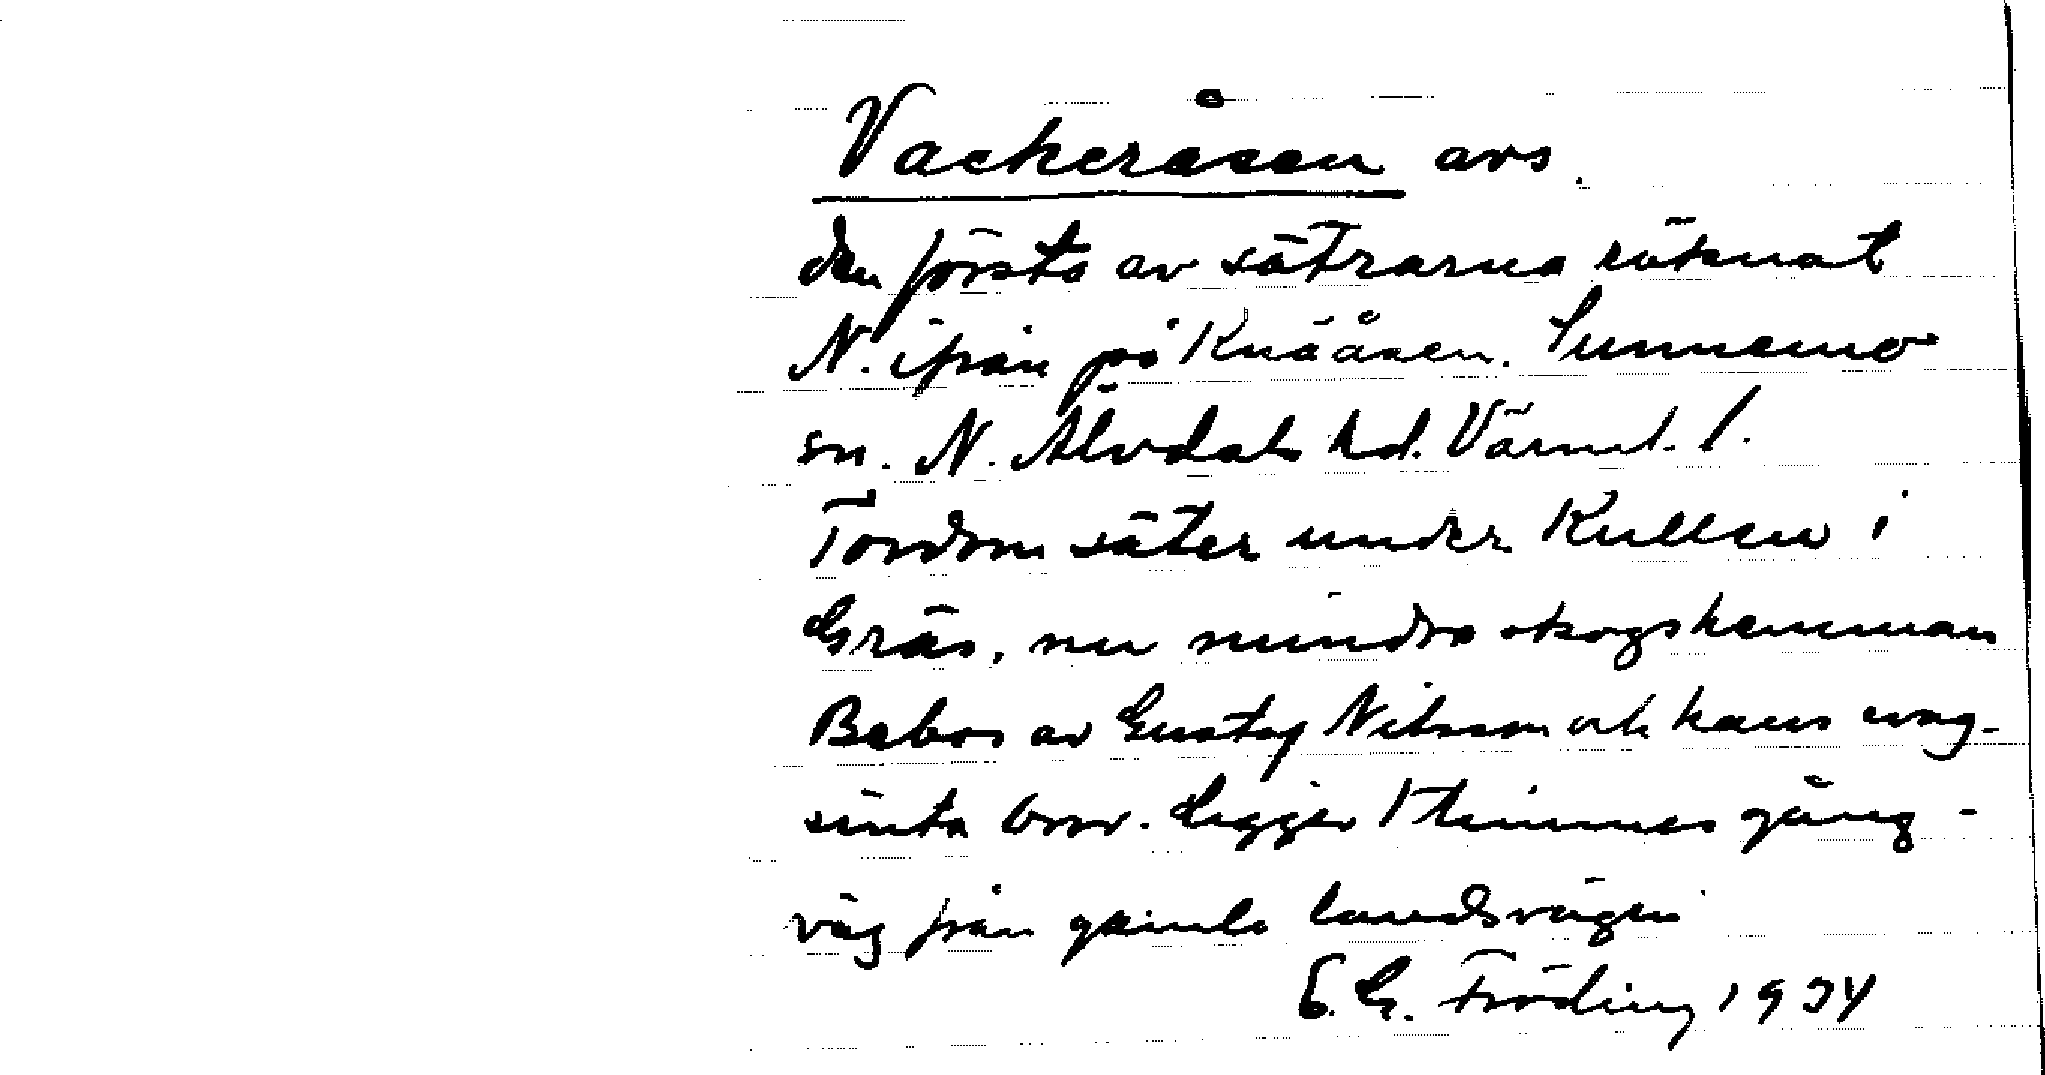 Vackeråsen avs.
den första av sätrarna räknat
N. ifrån på Knääåsen. Sunnemo
sn. N. Älvdals hd. Värml. l.
Fordom säter under Kullen i
Gräs, nu mindre skogshemman
Bebos av Gustaf Nilsson och hans
Ligger 1 timmes gång-
väg från gamla landsvägen
E. G. Fröding 1934